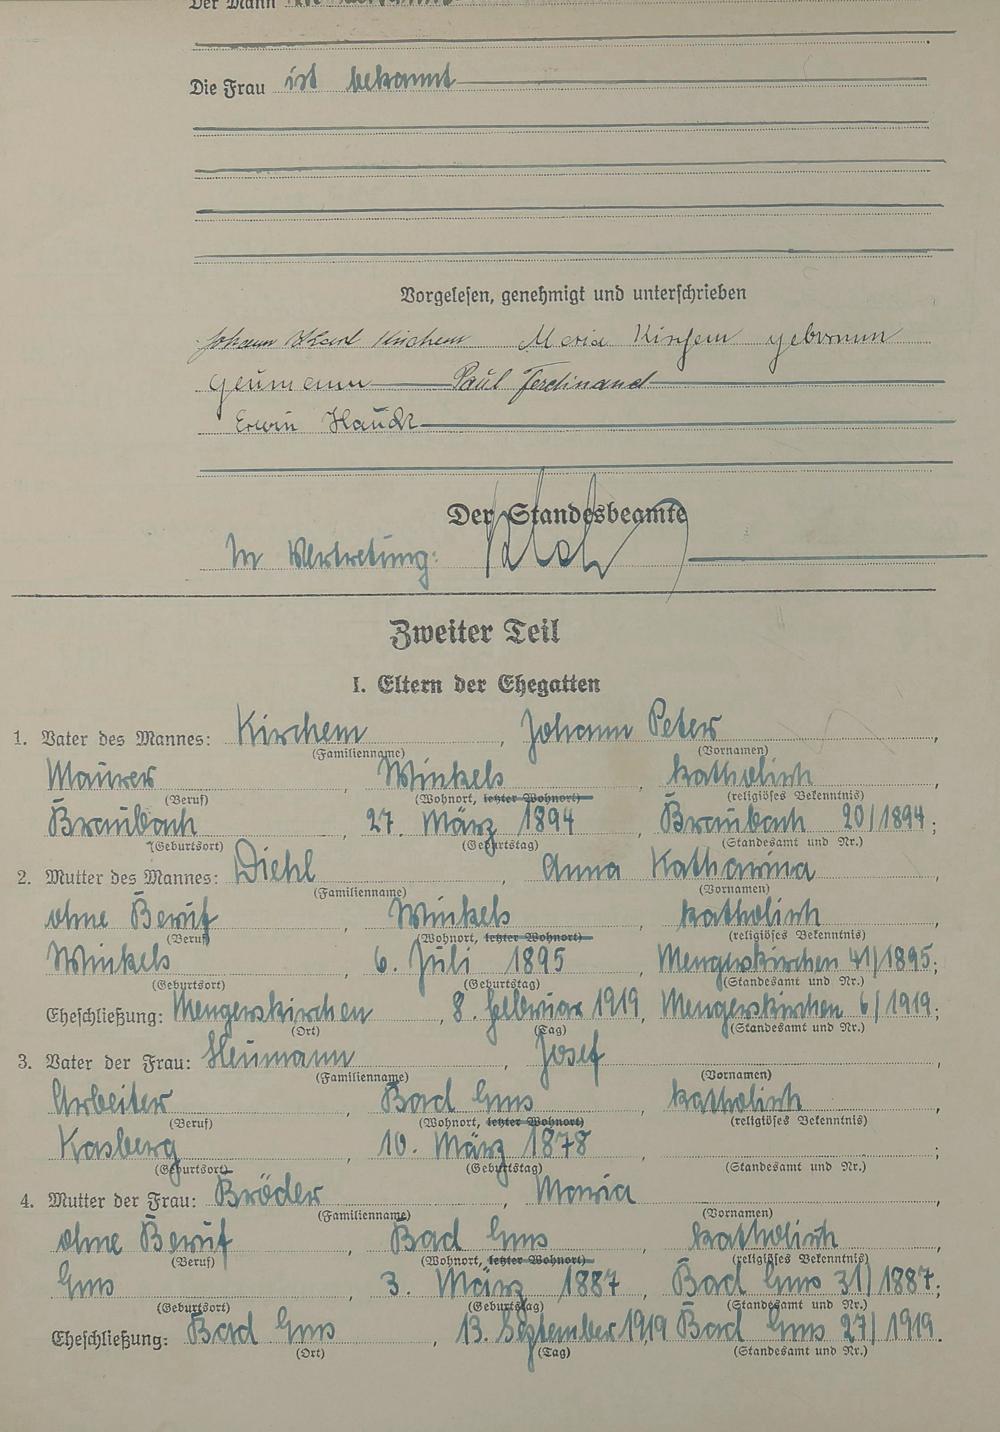 Der Mann
Die Frau ist bekannt
Vorgelesen, genehmigt und unterschrieben
Johann Karl Kirchem Maria Kirchem geborenen
Heumann Paul Ferdinand
Erwin Haudt
Der Standesbeamte
In Vertretung:
Zweiter Teil
I. Eltern der Ehegatten
1. Vater des Mannes: Kirchem, Johann Peter,
(Familienname) (Vornamen)
Maurer, Winkels, katholisch,
(Beruf) (Wohnort, letzter Wohnort) (religiöses Bekenntnis)
Braubach, 27. März 1894, Braubach 20/1894;
(Geburtsort) (Geburtstag) (Standesamt und Nr.)
2. Mutter des Mannes: Diehl, Anna Katharina,
(Familienname) (Vornamen)
ohne Beruf, Winkels, katholisch,
(Beruf) (Wohnort, letzter Wohnort) (religiöses Bekenntnis)
Winkels, 6. Juli 1895, Mengerskirchen 41/1895;
(Geburtsort) (Geburtstag) (Standesamt und Nr.)
Eheschließung: Mengerskirchen, 8. Februar 1919, Mengerskirchen 6/1919;
(Ort) (Tag) (Standesamt und Nr.)
3. Vater der Frau: Heumann, Josef,
(Familienname) (Vornamen)
Arbeiter, Bad Ems, katholisch,
(Beruf) (Wohnort, letzter Wohnort) (religiöses Bekenntnis)
Kasberg, 10. März 1878, ;
(Geburtsort) (Geburtstag) (Standesamt und Nr.)
4. Mutter der Frau: Bröder, Maria,
(Familienname) (Vornamen)
ohne Beruf, Bad Ems, katholisch,
(Beruf) (Wohnort, letzter Wohnort) (religiöses Bekenntnis)
Ems, 3. März 1887, Bad Ems 31/1887;
(Geburtsort) (Geburtstag) (Standesamt und Nr.)
Eheschließung: Bad Ems, 13. September 1919, Bad Ems 27/1919.
(Ort) (Tag) (Standesamt und Nr.)